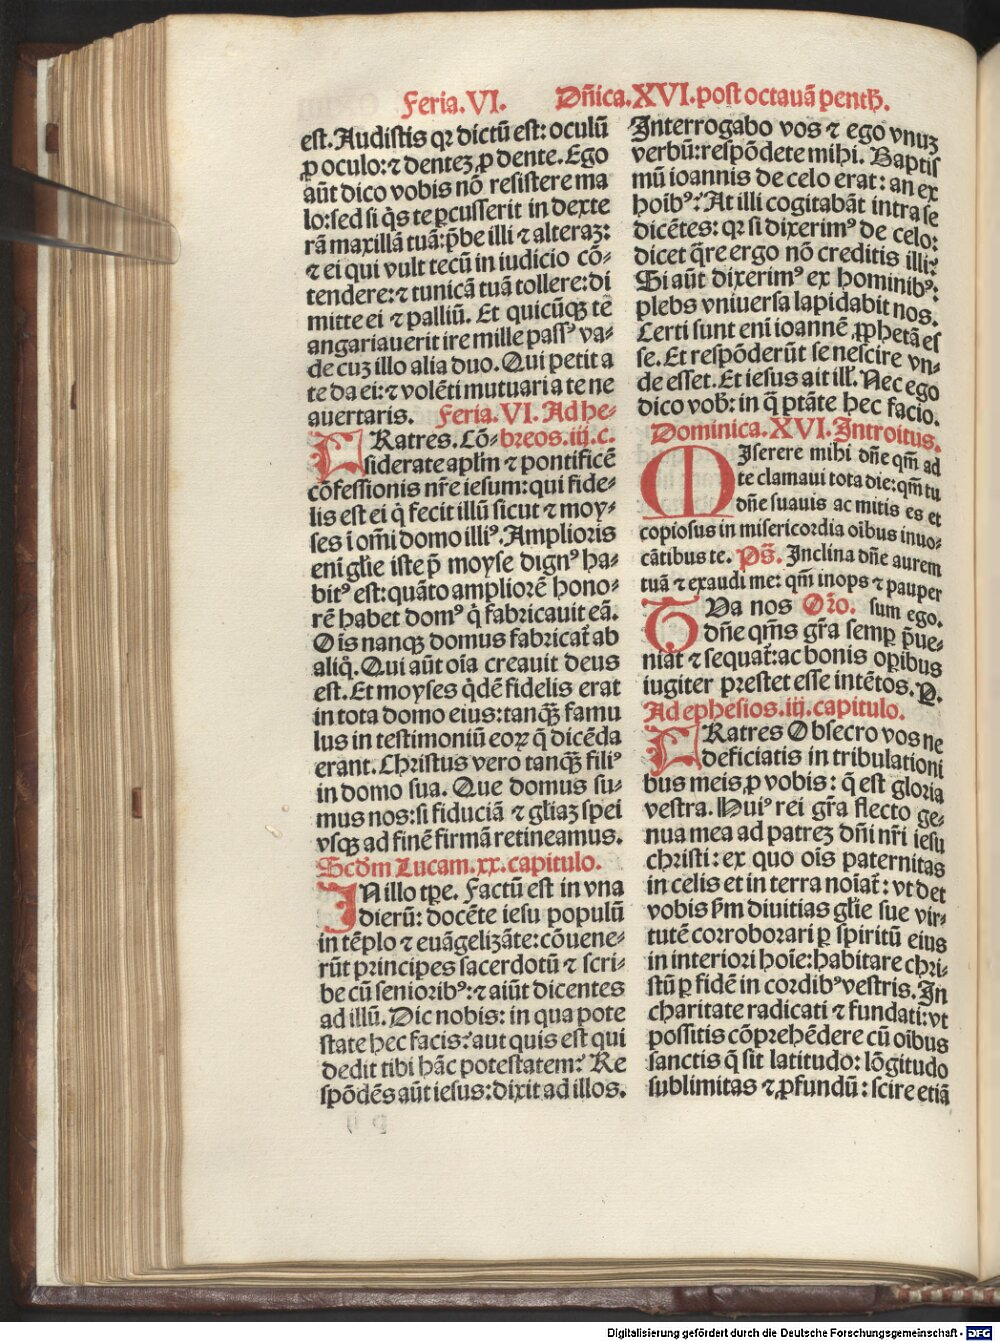 Feria.VI. Dñica.XVI.post octauã penth̃.
est. Audistis qꝛ dictũ est: oculũ
ꝓ oculo: ⁊ denteꝫ ꝓ dente. Ego
aũt dico vobis nõ resistere ma
lo: sed si q̇s te ꝑcusserit in dexte
rã maxillã tuã: p̃be illi ⁊ alteraꝫ:
⁊ ei qui vult tecũ in iudicio cõ⸗
tendere: ⁊ tunicã tuã tollere: di
mitte ei ⁊ palliũ. Et quicũqꝫ te
angariauerit ire mille passꝰ va⸗
de cuꝫ illo alia duo. Qui petit a
te da ei: ⁊ volẽti mutuari a te ne
auertaris. Feria. VI. Ad he⸗
FRatres. Cõ⸗ breos. iij. c.
siderate apl̃m ⁊ pontificẽ
cõfessionis nr̃e iesum: qui fide⸗
lis est ei q̇ fecit illũ sicut ⁊ moy⸗
ses ĩ om̃i domo illiꝰ. Amplioris
eni gl̃ie iste p̃ moyse dignꝰ ha⸗
bitꝰ est: quãto ampliorẽ hono⸗
rẽ habet domꝰ q̇ fabricauit eã.
Oĩs nanqꝫ domus fabricat᷑ ab
aliq̇. Qui aũt oĩa creauit deus
est. Et moyses q̇dẽ fidelis erat
in tota domo eius: tanqꝫ̃ famu
lus in testimoniũ eoꝝ q̃ dicẽda
erant. Christus vero tanqꝫ̃ filiꝰ
in domo sua. Que domus su⸗
mus nos: si fiduciã ⁊ gliaꝫ spei
vsqꝫ ad finẽ firmã retineamus.
Scd̃m Lucam. xx. capitulo.
IN illo tꝑe. Factũ est in vna
dierũ: docẽte iesu populũ
in tẽplo ⁊ euãgelizãte: cõuene⸗
rũt principes sacerdotũ ⁊ scri⸗
be cũ senioribꝰ: ⁊ aiũt dicentes
ad illũ. Dic nobis: in qua pote
state hec facis: aut quis est qui
dedit tibi hãc potestatem: Re
spõdẽs aũt iesus: dixit ad illos.
Interrogabo vos ⁊ ego vnuꝫ
verbũ: respõdete mihi. Baptis
mũ ioannis de celo erat: an ex
hoĩbꝰ: At illi cogitabãt intra se
dicẽtes: qꝛ si dixerimꝰ de celo:
dicet q̃re ergo nõ creditis illi:
Si aũt dixerimꝰ ex hominibꝰ:
plebs vniuersa lapidabit nos.
Certi sunt eni ioannẽ ꝓphetã es
se. Et respõderũt se nescire vn⸗
de esset. Et iesus ait ill̓. Nec ego
dico vob̓: in q̃ ptãte hec facio.
Dominica. XVI. Introitus.
MIserere mihi dñe qm̃ ad
te clamaui tota die: qm̃ tu
dñe suauis ac mitis es et
copiosus in misericordia oĩbus inuo⸗
cãtibus te. Ps̃. Inclina dñe aurem
tuã ⁊ exaudi me: qm̃ inops ⁊ pauper
TVa nos Or̃o. sum ego.
dñe qm̃s gr̃a semꝑ p̃ue⸗
niat ⁊ sequat᷑: ac bonis oꝑibus
iugiter prestet esse intẽtos. P.
Ad ephesios. iij. capitulo.
FRatres Obsecro vos ne
deficiatis in tribulationi
bus meis ꝓ vobis: q̃ est gloria
vestra. Huiꝰ rei gr̃a flecto ge⸗
nua mea ad patreꝫ dñi nr̃i iesu
christi: ex quo oĩs paternitas
in celis et in terra noĩat᷑: vt det
vobis ẜm diuitias gl̃ie sue vir⸗
tutẽ corroborari ꝑ spiritũ eius
in interiori hoĩe: habitare chri⸗
stũ ꝑ fidẽ in cordibꝰ vestris. In
charitate radicati ⁊ fundati: vt
possitis cõprehẽdere cũ oĩbus
sanctis q̃ sit latitudo: lõgitudo
sublimitas ⁊ ꝓfundũ: scire etiã
Digitalisierung gefördert durch die Deutsche Forschungsgemeinschaft - DFG